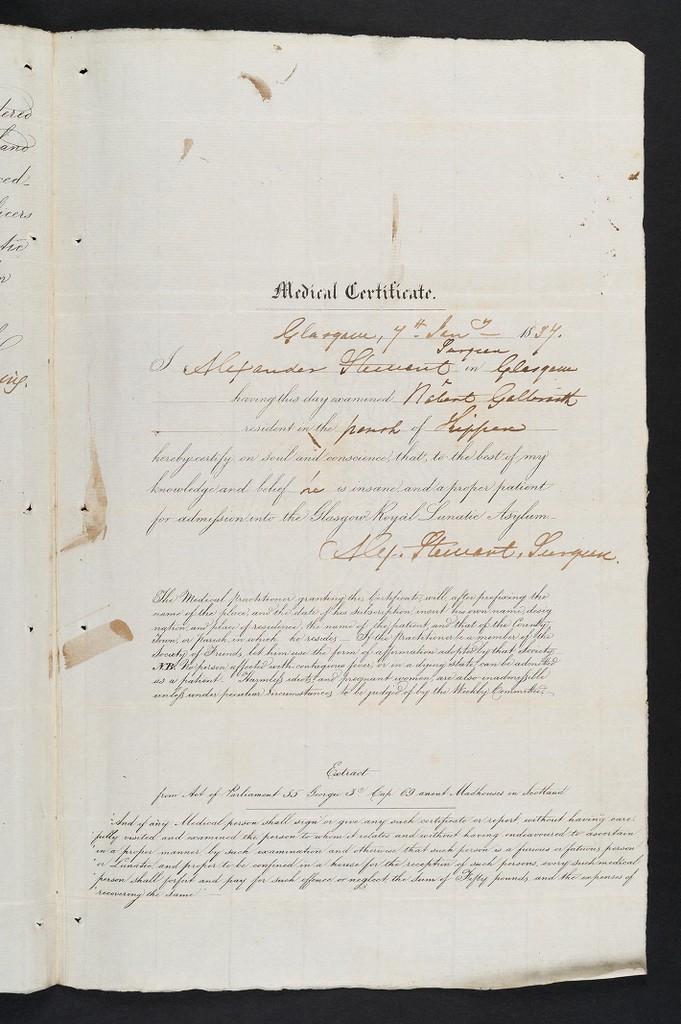 tered
and
ced-
icers
Medical Certificate.
Glasgow, 7th Jany 1837.
Surgeon
I Alexander Stewart in Glasgow
having this day examined Robert Galbraith
resident in the parish of Kippen
hereby certify on soul and conscience, that, to the best of my
knowledge and belief he is insane, and a proper patient
for admission into the Glasgow Royal Lunatic Asylum.
Alex. Stewart, Surgeon.
The Medical Practitioner granting this Certificate, will, after prefixing the
name of the place, and the date of his subscription, insert his own name, desig
nation, and place of residence, the name of the patient, and that of the Country,
Town, or Parish, in which he resides — If the Practitioner be a member of the
Society of Friends, let him use the form of affirmation adopted by that Society.
NB. No person affected with contagious fever, or in a dying state, can be admitted
as a patient. Harmless idiots, and pregnant women, are also inadmissible
unless under peculiar circumstances, to be judged of by the Weekly Committee.
Extract
from Act of Parliament 55 Georgii 3d Cap 69 anent Madhouses in Scotland
"And if any Medical person shall sign or give any such certificate or report without having care-
"fully visited and examined the person to whom it relates and without having endeavoured to ascertain
"in a proper manner by such examination and otherwise that such person is a furious or fatuous person
"or Lunatic, and proper to be confined in a house for the reception of such persons, every such medical
"person shall forfeit and pay for such offence or neglect, the sum of Fifty pounds, and the expenses of
"recovering the same" —